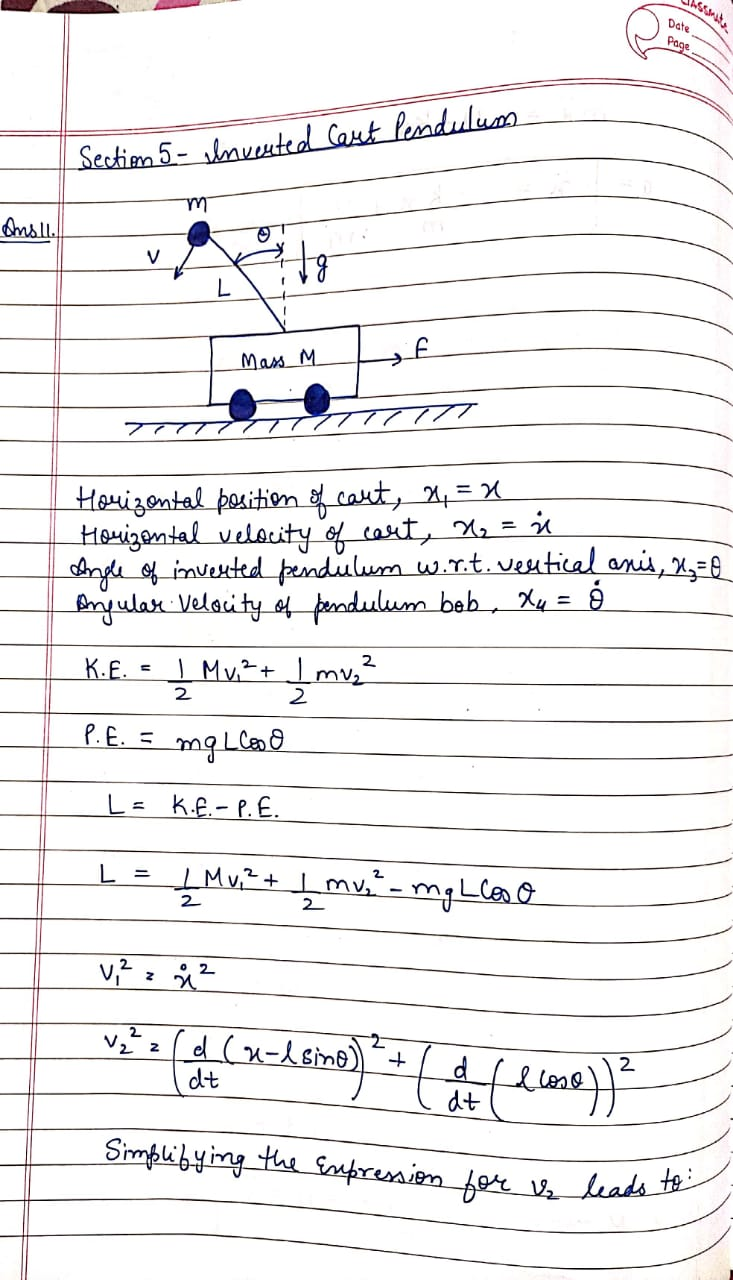 classmate
Date
Page
Section 5 - Inverted Cart Pendulum
Ans 11.
m
θ
v
g
L
Mass M
F
Horizontal position of cart, x₁ = x
Horizontal velocity of cart, x₂ = ẋ
Angle of inverted pendulum w.r.t. vertical axis, x₃=θ
Angular Velocity of pendulum bob, x₄ = θ̇
K.E. = 1/2 Mv₁² + 1/2 mv₂²
P.E. = mgLCosθ
L = K.E. - P.E.
L = 1/2 Mv₁² + 1/2 mv₂² - mgLCosθ
v₁² = ẋ²
v₂² = (d/dt (x-lsinθ))² + (d/dt (lcosθ))²
Simplifying the Expression for v₂ leads to: